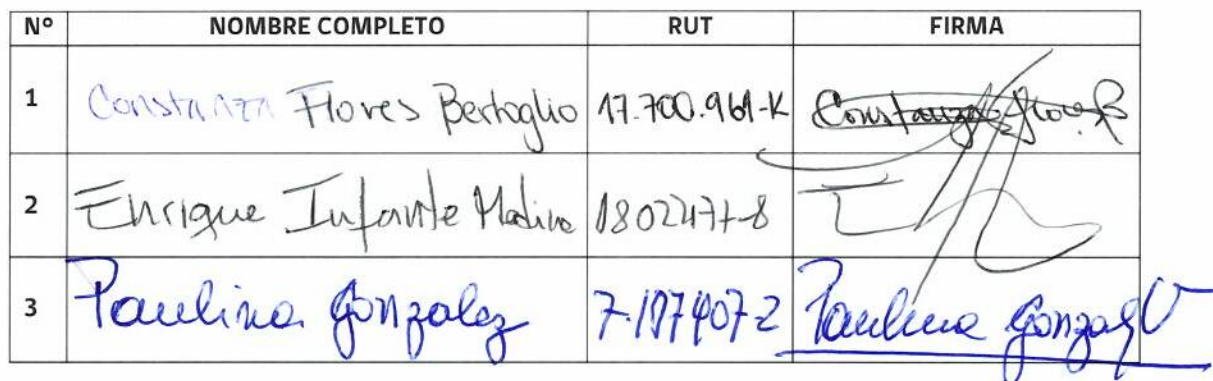 Nº NOMBRE COMPLETO RUT FIRMA
1 Constanza Flores Bertoglio 17.700.961-K Constanza Flores B
2 Enrique Infante Medina
3 Paulina Gonzalez Paulina Gonzalez V